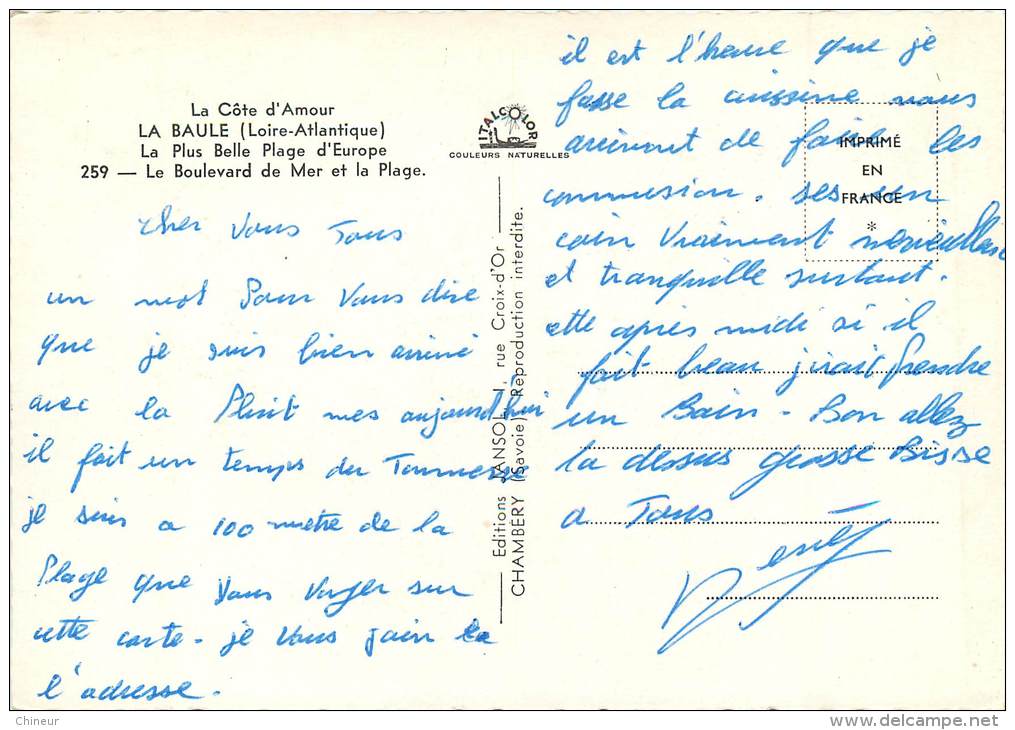 La Côte d'Amour
LA BAULE (Loire-Atlantique)
La Plus Belle Plage d'Europe
259 — Le Boulevard de Mer et la Plage.
ITALCOLOR
COULEURS NATURELLES
cher Vous Tous
un mot Pour Vous dire
que je suis bien arrivé
avec la Pluit mes aujourd'hui
il fait un temps du Tonnerre
je suis a 100 metre de la
Plage que Vous Voyer sur
cette carte. je Vous join
l'adresse.
Editions J. ANSOL , rue Croix-d'Or
CHAMBÉRY (Savoie) Reproduction interdite.
IMPRIMÉ
EN
FRANCE
*
il est l'heure que je
fasse la cuissine nous
arrivont de faire les
commusion. ses un
coin Vraiment merveilleux
et tranquille surtout.
cette après midi si il
fait beau j'irait Prendre
un Bain - Bon allez
la dessus grosse Bisse
a Tous
René
Chineur
delcampe.net